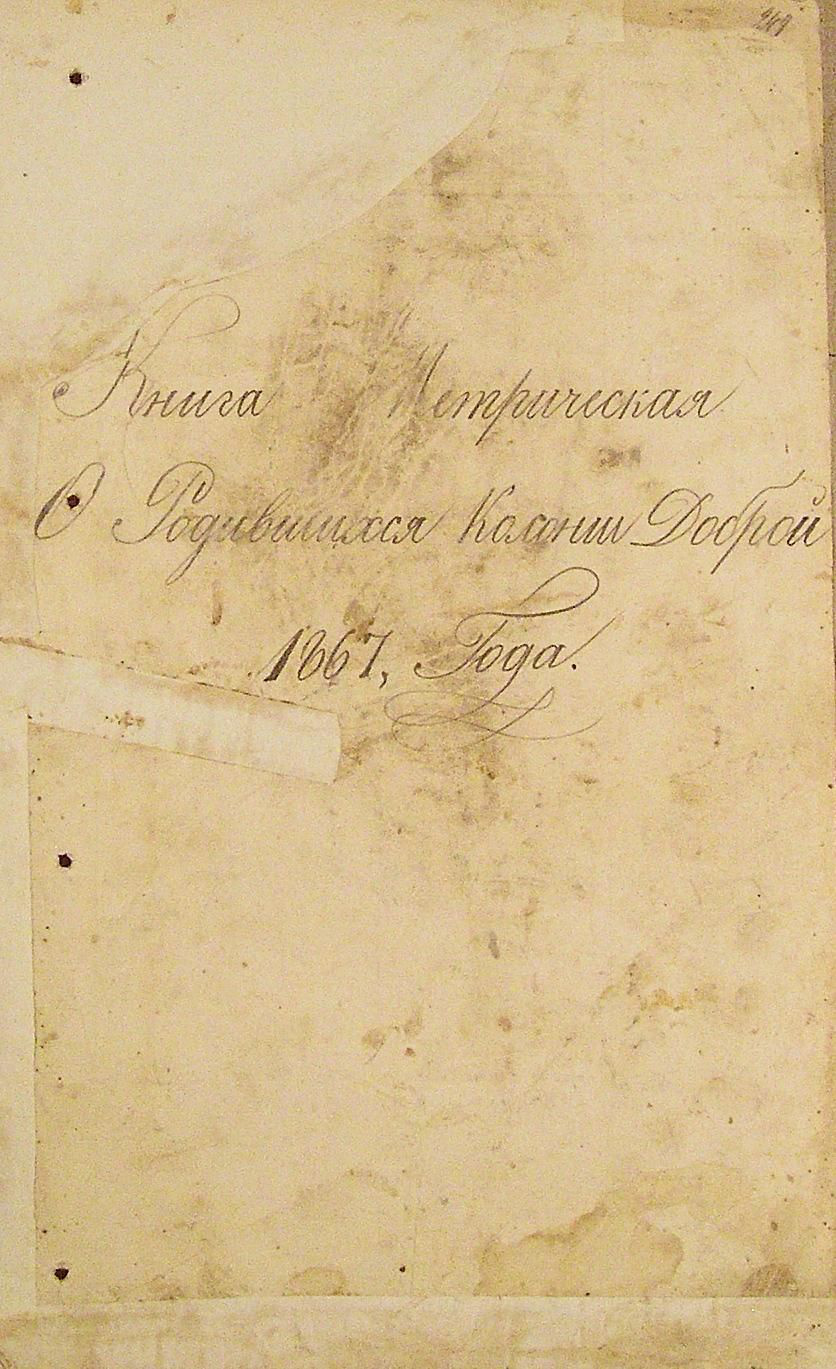 249
Книга Метрическая
О Родившихся Колонии Доброй
1867, Года.